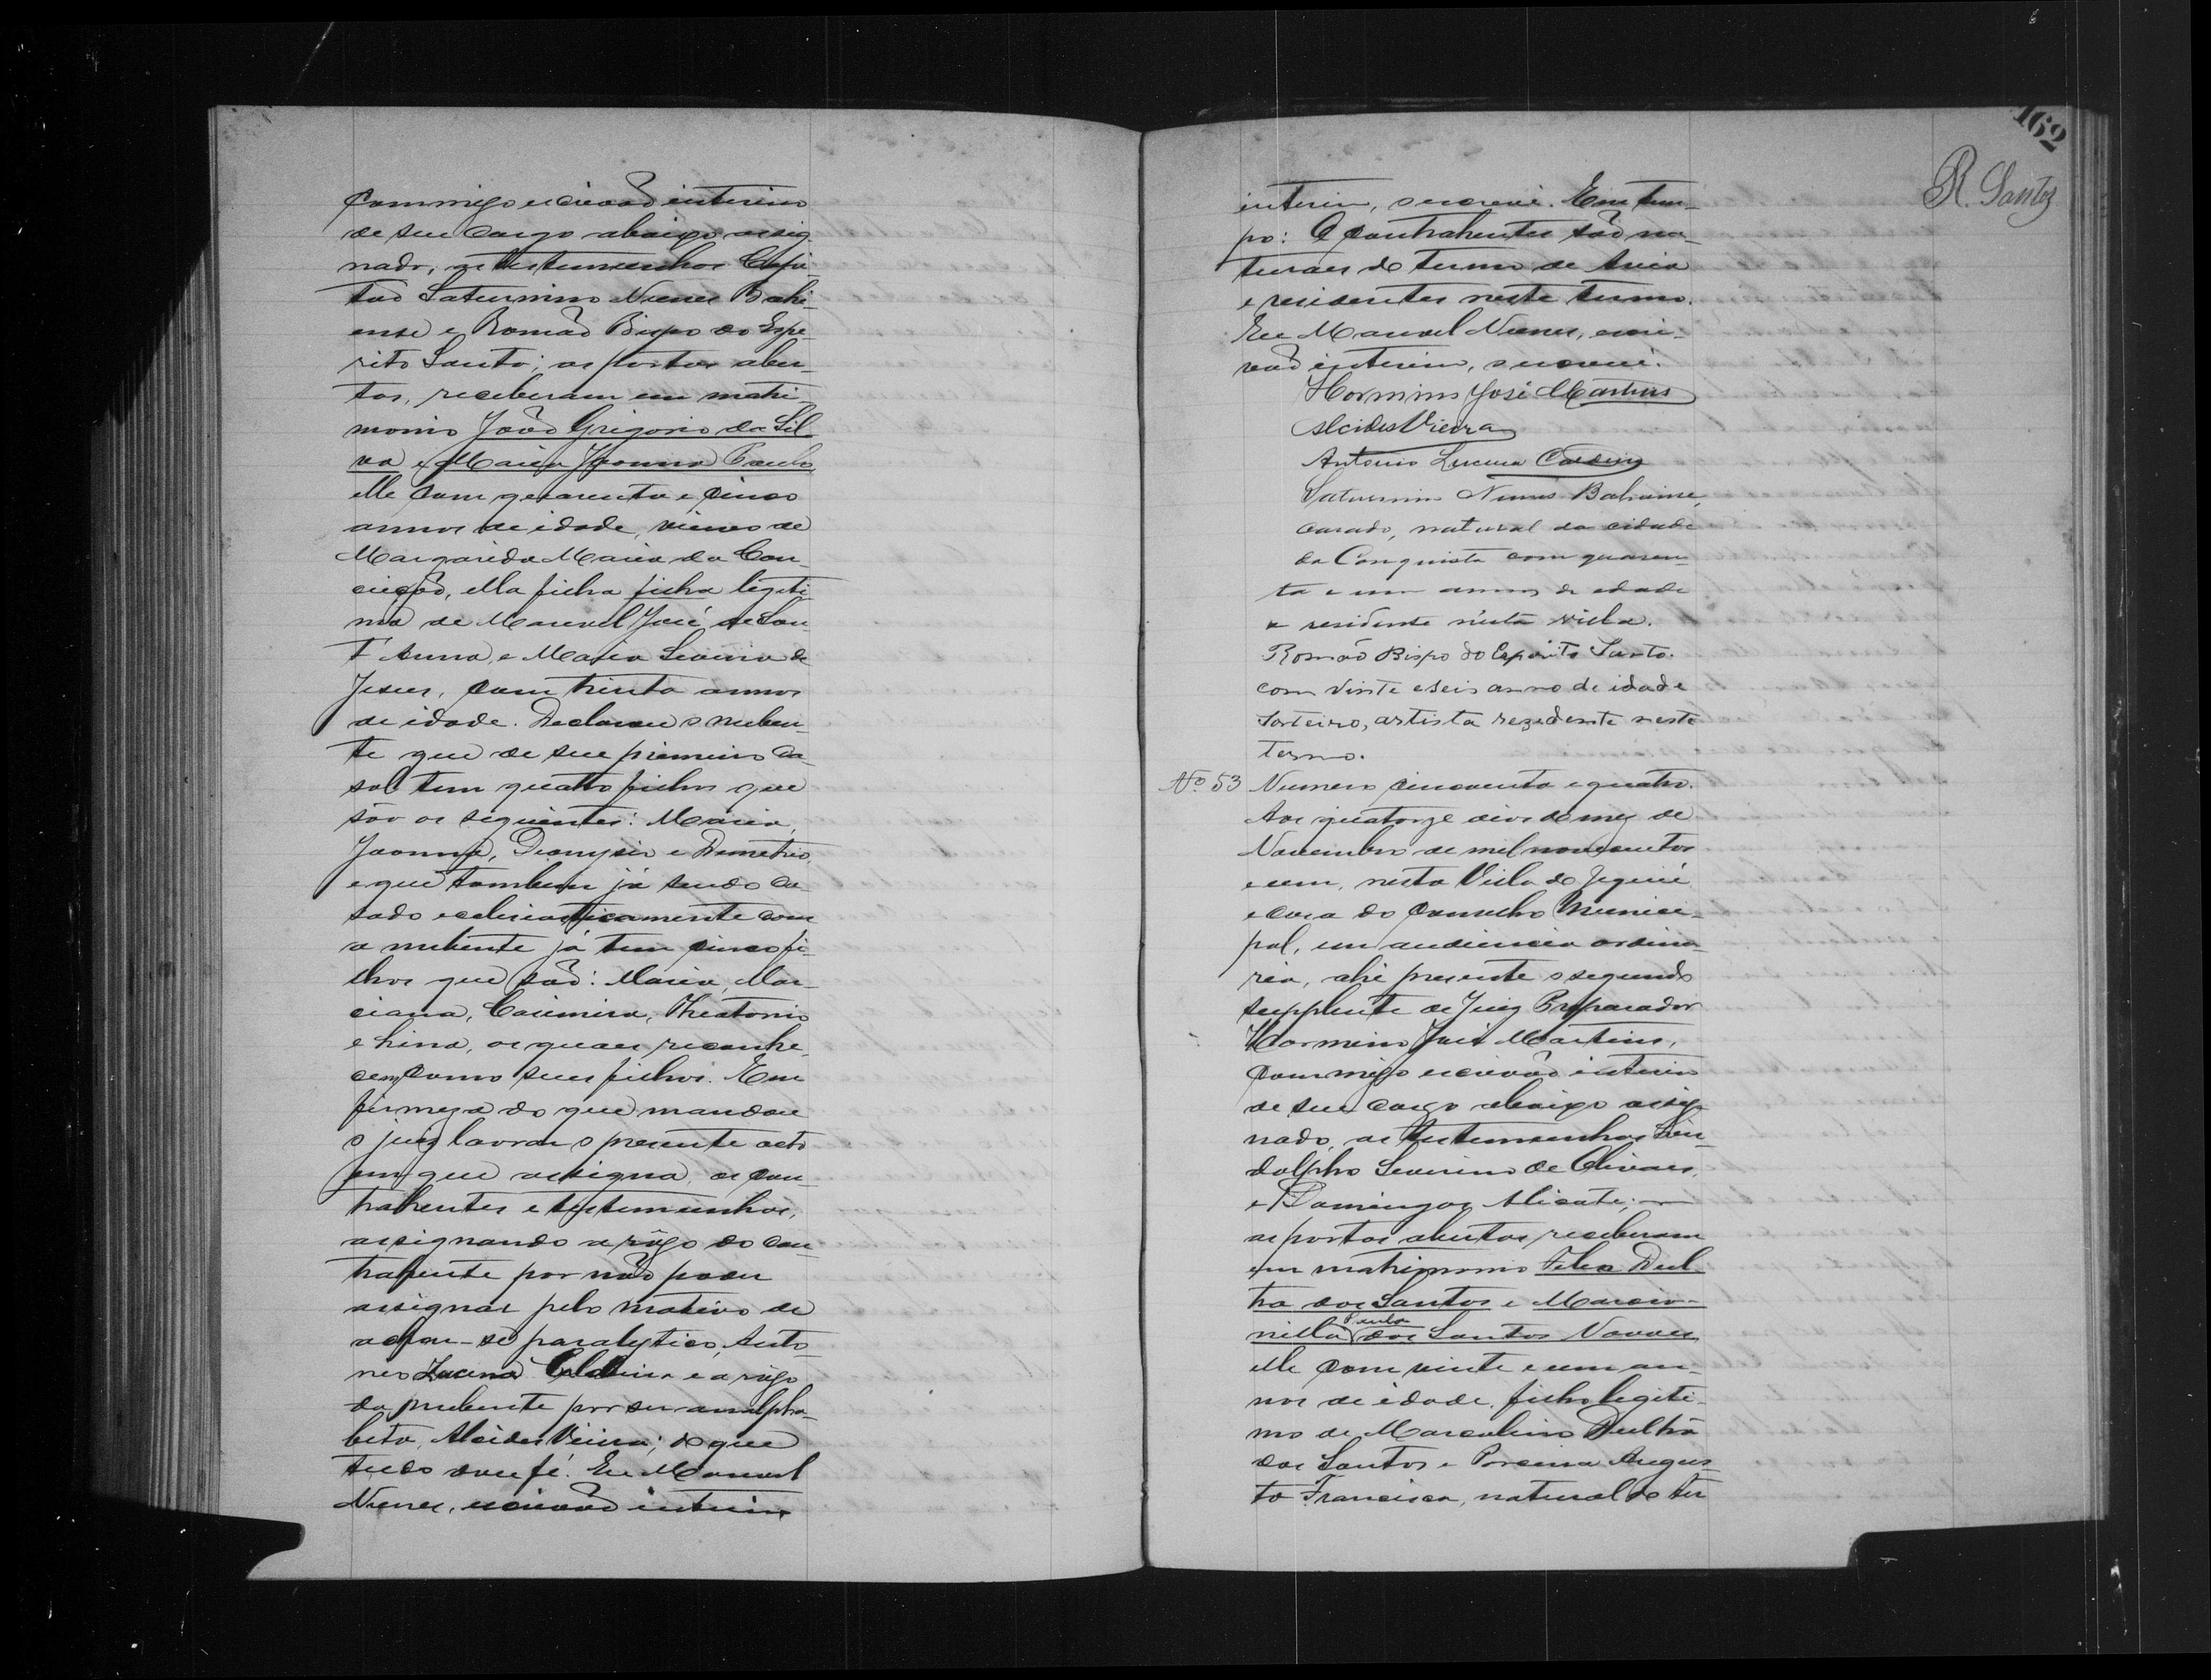 commigo escrivão interino
de seu cargo abaixo assig-
nado, as testemunhas Capi-
tão Saturnino Nunes Bahi-
ense e Romão Bispo do Espi-
rito Santo; as portas aber-
tas, receberam em matri-
monio João Grigorio da Sil-
va e Maria Joanna
elle com quarenta e cinco
annos de idade, viuvo de
Margarida Maria da Con-
ceição, ella filha filha legiti-
ma de Manoel José de San-
t'Anna, e Maria Severia de
Jesus, com trinta annos
de idade. Declarou o nuben-
te que de seu primeiro ca-
sal tem quatro filhos que
são os seguintes: Maria,
Joanna, Dionysia e Demetrio,
e que tambem já sendo ca-
sado ecclesiasticamente com
a nubente já tem cinco fi-
lhos que são: Maria, Mar-
ciana, Casimira, Theotonio
e Lina, os quaes reconhe-
cem como seus filhos. Em
firmeza do que mandou
o juiz lavrar o presente acto
em que assigna, os con-
trahentes e testemunhas,
assignando a rôgo do con-
trahente por não poder
assignar pelo motivo de
achar-se paralytico, Anto-
nio Lucena e a rôgo
da nubente por ser analpha-
beta, Alcides Vieira; do que
tudo dou fé. Eu Manoel
Nunes, escrivão interino
162
R. Santos
interino, o escrevi. Em tem-
po: O contrahentes são na-
turaes do termo de Areia
e residentes neste termo.
Eu Manoel Nunes, escri-
vão interino, o escrevi.
Hormino José Martins
Alcides Vieira
Antonio Lucena
Saturnino Nunes Bahiense,
casado, natural da cidade
da Conquista com quaren-
ta e um annos de edade
e residente n'esta villa.
Romão Bispo do Espirito Santo.
com vinte e seis anno de idade
sorteiro, artista rezedente neste
termo.
Nº 53 Numero cincoenta e quatro.
Aos quatorze dias do mez de
Novembro de mil novecentos
e um, nesta Villa de Jequié
e casa do Conselho Munici-
pal, em audiencia ordina-
ria, ahi presente o segundo
supplente de Juiz Preparador
Hormino José Martins,
commigo escrivão interino
de seu cargo abaixo assig-
nado, as testemunhas Lin-
dolpho Severino de Oliveira,
e Domingos Alicate;
as portas abertas receberam
em matrimonio Dul-
tra dos Santos e Marcio-
nilla dos Santos Novaes
elle com vinte e um an-
nos de idade, filho legiti-
mo de Marcolino Dultra
dos Santos e Porcina Augus-
ta Francisca, natural do ter